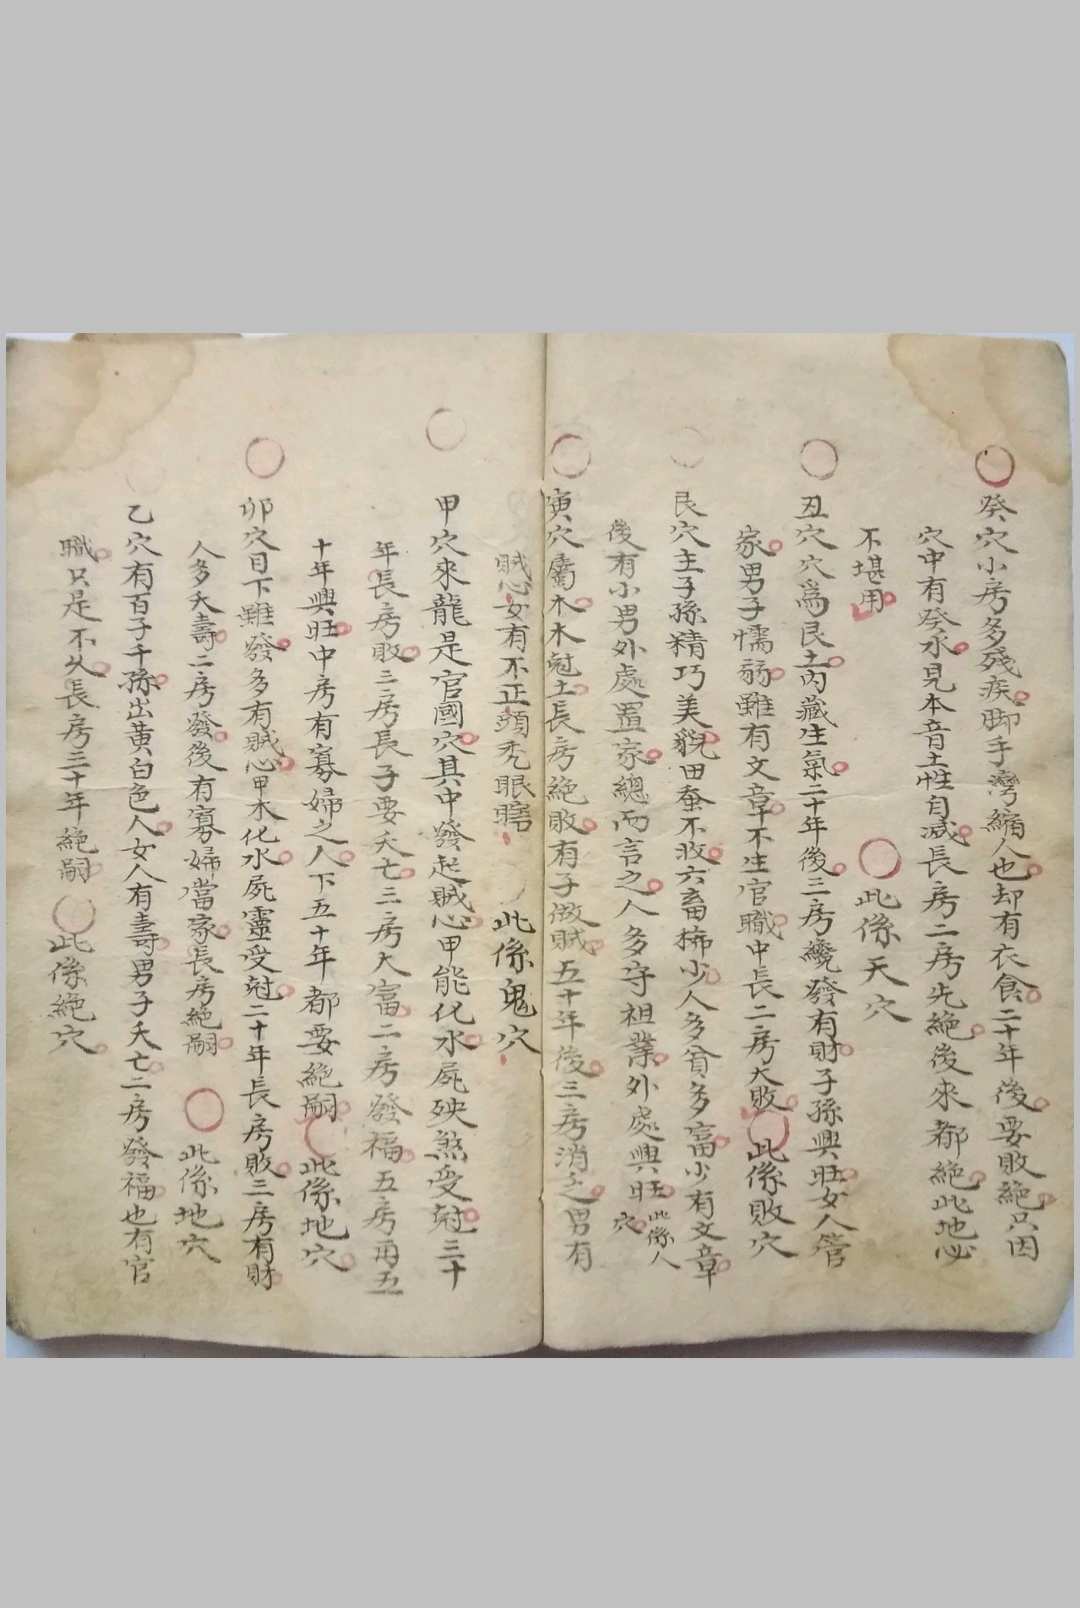 癸穴小房多殘疾脚手灣縮人也却有衣食二十年後要敗絶只因
穴中有癸水見本音土性自减長房二房先絶後來都絶此地必
不堪用 此係天穴
丑穴穴爲艮土内藏生氣二十年後三房纔發有財子孫興旺女人管
家男子懦弱雖有文章不生官職中長二房大敗 此係敗穴
艮穴主子孫精巧美貌田蚕不收六畜稀少人多貧多富少有文章
後有小男外處置家總而言之人多守祖業外處興旺此係人穴
寅穴屬木木尅土長房絶敗有子做賊五十年後三房消乏男有
賊心女有不正頭秃眼瞎 此係鬼穴
甲穴來龍是官國穴其中發起賊心甲能化水屍殃煞受尅三十
年長房敗三房長子要夭亡三房大富二房發福五房再五
十年興旺中房有寡婦之人下五十年都要絶嗣 此係地穴
卯穴目下雖發多有賊心甲木化水屍靈受尅二十年長房敗三房有財
人多夭壽二房發後有寡婦當家長房絶嗣 此係地穴
乙穴有百子千孫出黃白色人女人有壽男子夭亡二房發福也有官
職只是不久長房三十年絶嗣 此係絶穴